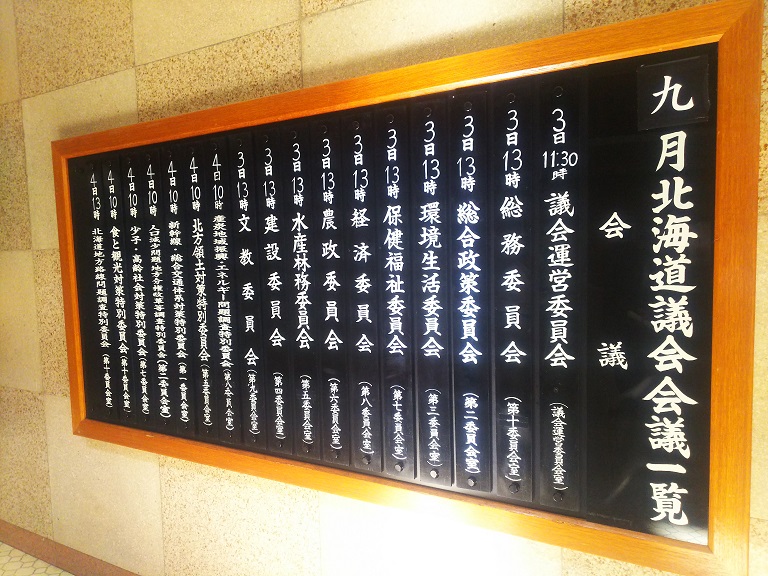 九月北海道議会会議一覧
会議
3日11:30時 議会運営委員会 (議会運営委員会室)
3日13時 総務委員会 (第十委員会室)
3日13時 総合政策委員会 (第二委員会室)
3日13時 環境生活委員会 (第三委員会室)
3日13時 保健福祉委員会 (第七委員会室)
3日13時 経済委員会 (第八委員会室)
3日13時 農政委員会 (第六委員会室)
3日13時 水産林務委員会 (第五委員会室)
3日13時 建設委員会 (第四委員会室)
3日13時 文教委員会 (第九委員会室)
4日10時 産炭地域振興・エネルギー問題調査特別委員会 (第八委員会室)
4日10時 北方領土対策特別委員会 (第五委員会室)
4日10時 新幹線・総合交通体系対策特別委員会 (第一委員会室)
4日10時 人口減少問題・地方分権改革等調査特別委員会 (第二委員会室)
4日10時 少子・高齢社会対策特別委員会 (第七委員会室)
4日10時 食と観光対策特別委員会 (第十委員会室)
4日13時 北海道地方路線問題調査特別委員会 (第十委員会室)